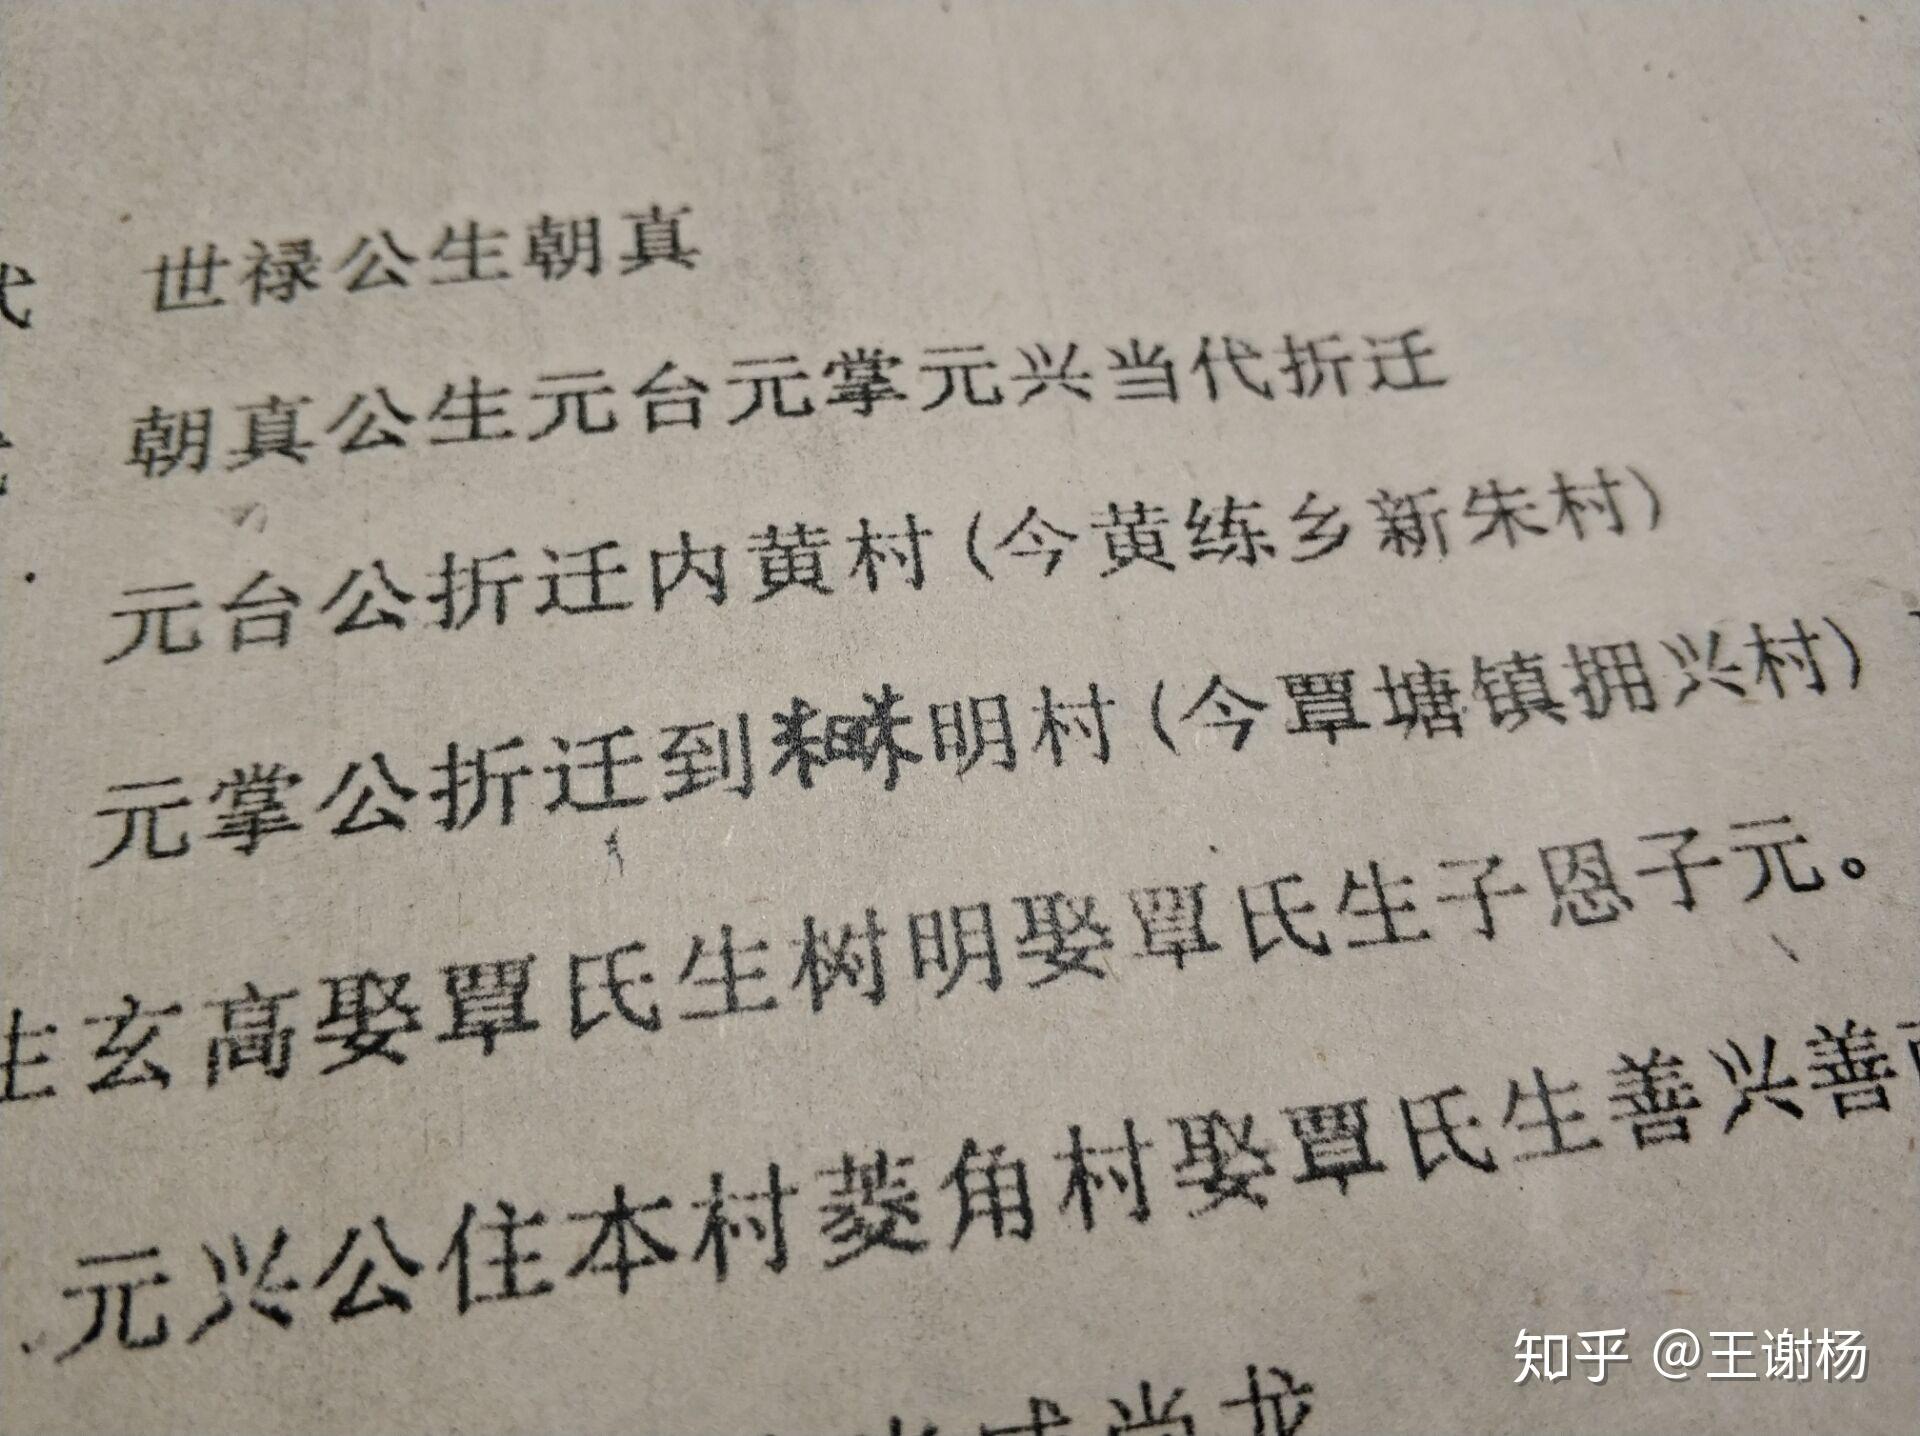 代 世禄公生朝真
朝真公生元台元掌元兴当代折迁
元台公折迁内黄村(今黄练乡新朱村)
元掌公折迁到明村(今覃塘镇拥兴村)
生玄高娶覃氏生树明娶覃氏生子恩子元。
元兴公住本村菱角村娶覃氏生善兴善
尚龙
知乎 @王谢杨